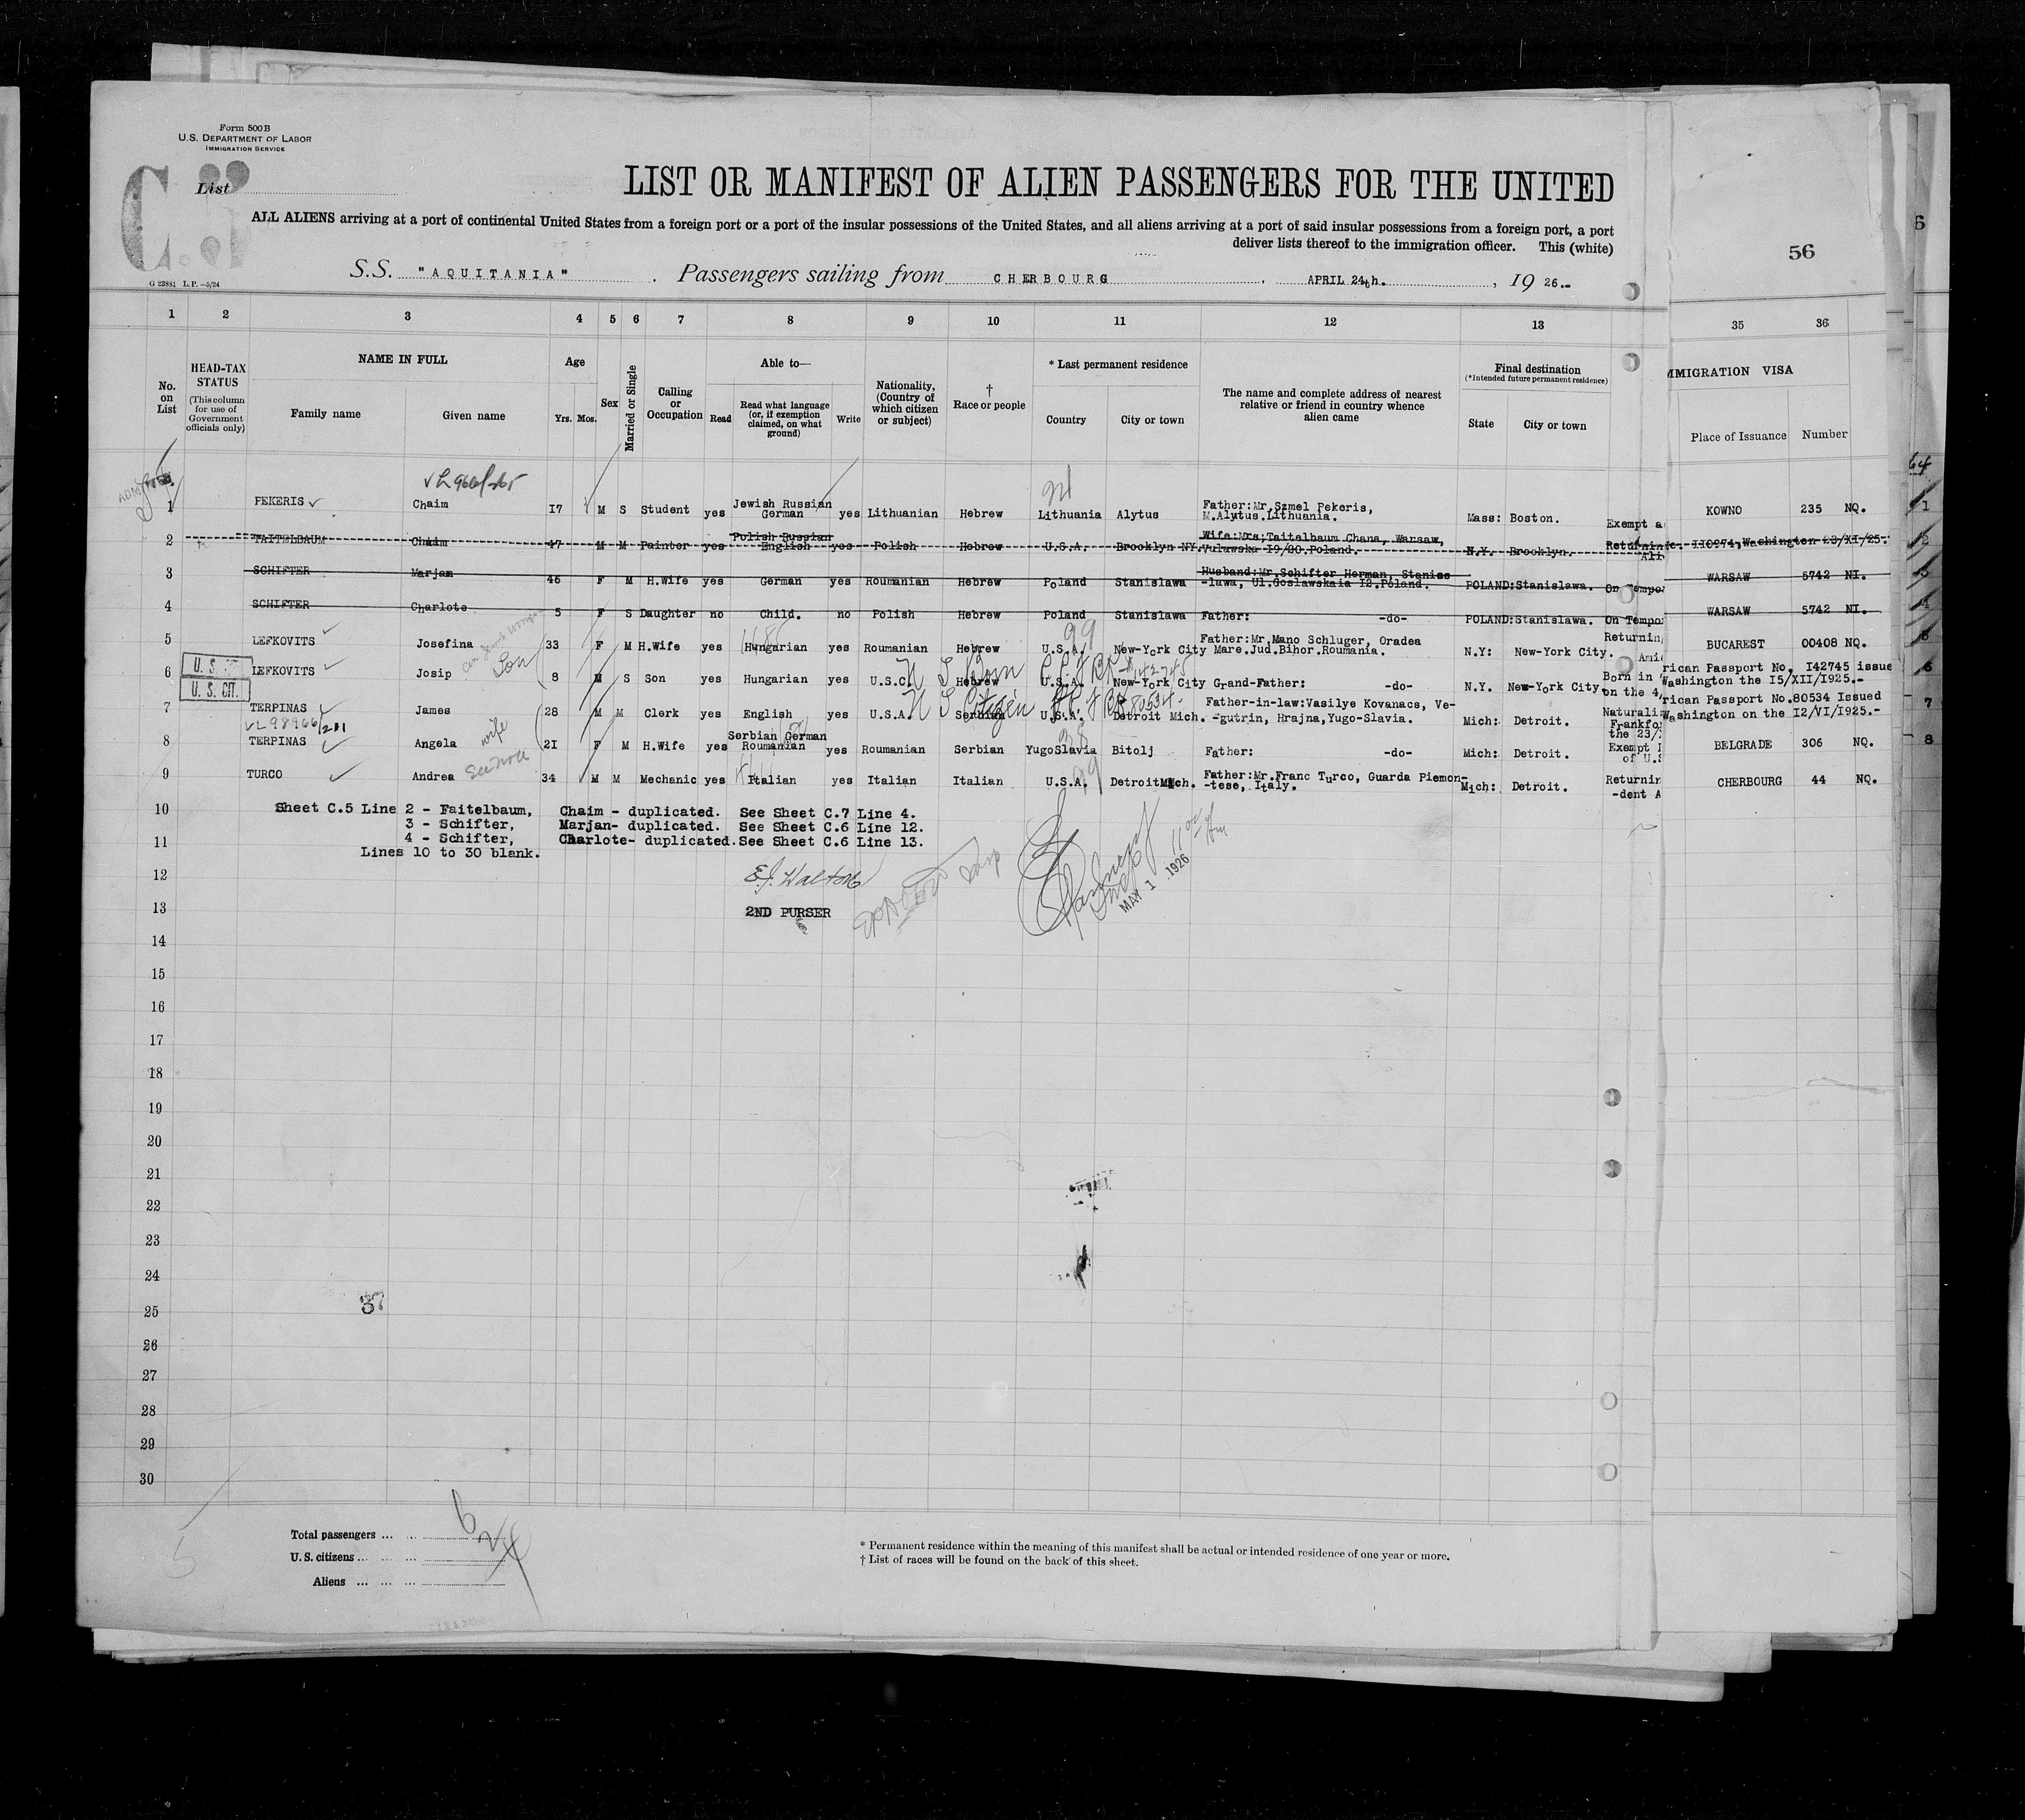 Form 500 B
U.S. DEPARTMENT OF LABOR
IMMIGRATION SERVICE
C.5
List
LIST OR MANIFEST OF ALIEN PASSENGERS FOR THE UNITED
ALL ALIENS arriving at a port of continental United States from a foreign port or a port of the insular possessions of the United States, and all aliens arriving at a port of said insular possessions from a foreign port, a port
deliver lists thereof to the immigration officer. This (white)
56
S.S. "AQUITANIA" . Passengers sailing from CHERBOURG , APRIL 24th. , 19 26.-
G 23881 L.P.—5/24
1 2 3 4 5 6 7 8 9 10 11 12 13 35 36
No. on List
HEAD-TAX STATUS (This column for use of Government officials only)
NAME IN FULL
Family name Given name
Age
Yrs. Mos.
Sex
Married or Single
Calling or Occupation
Able to—
Read
Read what language (or, if exemption claimed, on what ground)
Write
Nationality, (Country of which citizen or subject)
† Race or people
* Last permanent residence
Country City or town
The name and complete address of nearest relative or friend in country whence alien came
Final destination
(*Intended future permanent residence)
State City or town
IMMIGRATION VISA
Place of Issuance Number
1 PEKERIS Chaim 17 M S Student yes Jewish Russian German yes Lithuanian Hebrew Lithuania Alytus Father:Mr.Szmel Pekeris, M.Alytus.Lithuania. Mass: Boston. Exempt a KOWNO 235 NQ. 1
2 TAITELBAUM Chaim 47 M M Painter yes Polish Russian English yes Polish Hebrew U.S.A. Brooklyn NY. Wife:Mrs;Taitelbaum Chana, Warsaw, Vulawska 19/80.Poland. N.Y. Brooklyn. Returnin Washington 23/XI/25. 2
3 SCHIFTER Marjam 46 F M H.Wife yes German yes Roumanian Hebrew Poland Stanislawa Husband:Mr.Schifter Herman, Stanis= -lawa, Ul.Goslawskaia 12.Poland. POLAND:Stanislawa. On Tempo WARSAW 5742 NI. 3
4 SCHIFTER Charlote 5 F S Daughter no Child. no Polish Hebrew Poland Stanislawa Father: -do- POLAND:Stanislawa. On Tempo WARSAW 5742 NI. 4
5 LEFKOVITS Josefina 33 F M H.Wife yes Hungarian yes Roumanian Hebrew U.S.A. New-York City Father:Mr.Mano Schluger, Oradea Mare.Jud.Bihor.Roumania. N.Y: New-York City. Returnin BUCAREST 00408 NQ. 5
99
U.S. CIT.
6 LEFKOVITS Josip Son 8 M S Son yes Hungarian yes U.S.C. Hebrew U.S.A. New-York City Grand-Father: -do- N.Y. New-York City Born in on the 4 rican Passport No. I42745 issue Washington the I5/XII/1925.- 6
U S Born 142745
U. S. CIT.
7 TERPINAS James 28 M M Clerk yes English yes U.S.A. Serbian U.S.A. Detroit Mich. Father-in-law:Vasilye Kovanacs, Ve- -gutrin, Hrajna,Yugo-Slavia. Mich: Detroit. Naturali Frankfo the 23/ rican Passport No.80534 Issued Washington on the I2/VI/1925.- 7
U S Citizen 80534
8 TERPINAS Angela wife 2I F M H.Wife yes Serbian German Roumanian yes Roumanian Serbian YugoSlavia Bitolj Father: -do- Mich: Detroit. Exempt of U.S BELGRADE 306 NQ. 8
9 TURCO Andrea 34 M M Mechanic yes Italian yes Italian Italian U.S.A. Detroit Mich. Father:Mr.Franc Turco, Guarda Piemon- -tese, Italy. Mich: Detroit. Returnin -dent A CHERBOURG 44 NQ.
10 Sheet C.5 Line 2 - Faitelbaum, Chaim - duplicated. See Sheet C.7 Line 4.
3 - Schifter, Marjan- duplicated. See Sheet C.6 Line 12.
11 4 - Schifter, Charlote- duplicated.See Sheet C.6 Line 13.
Lines 10 to 30 blank.
12 E.J. Walton
13 2ND PURSER
MAY 1 1926
14
15
16
17
18
19
20
21
22
23
24
25 37
26
27
28
29
30
Total passengers ... ...
U. S. citizens ... ... ...
Aliens ... ... ...
* Permanent residence within the meaning of this manifest shall be actual or intended residence of one year or more.
† List of races will be found on the back of this sheet.